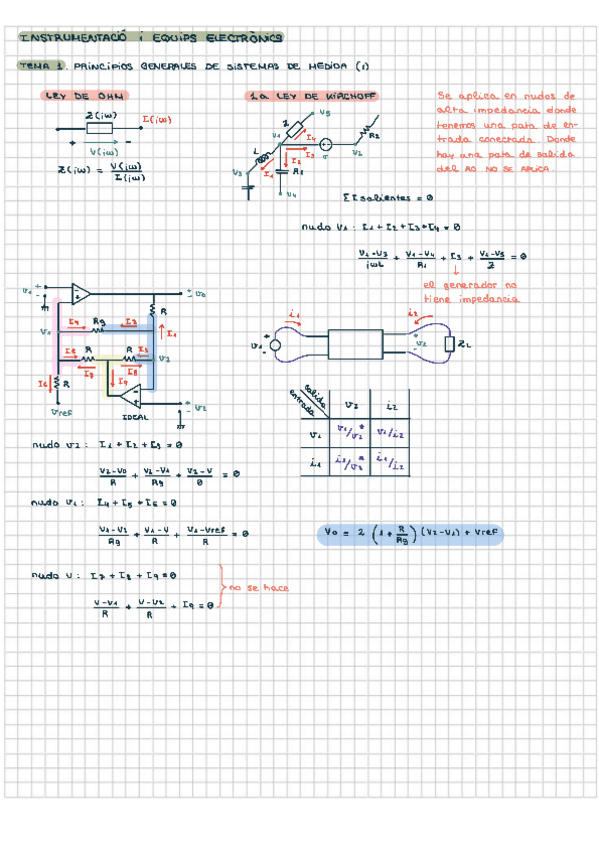 INSTRUMENTACIÓ i EQUIPS ELECTRÒNICS
TEMA 1. PRINCIPIOS GENERALES DE SISTEMAS DE MEDIDA (1)
LEY DE OHM
Z(jω)
I(jω)
+ V(jω) -
Z(jω) = V(jω) / I(jω)
1a LEY DE KIRCHOFF
V5
Z
I4
V1
I3
L
I2
R2
V2
V3
I1
R1
V4
Se aplica en nudos de
alta impedancia donde
tenemos una pata de en-
trada conectada. Donde
hay una pata de salida
del AO NO SE APLICA
ΣI salientes = 0
nudo V1 : I1 + I2 + I3 + I4 = 0
(V1-V3)/jωL + (V1-V4)/R1 + I3 + (V1-V5)/Z = 0
el generador no
tiene impedancia
V1
V0
R
I4
Rg
I2
I1
V1
I5
R
R
I3
V2
I6
R
I7
I8
I9
Vref
IDEAL
V2
i1
i2
V1
V2
ZL
salida
entrada
V2
i2
V1
V1/V2 *
V1/i2
i1
i1/V2 *
i1/i2
nudo V2 : I1 + I2 + I3 = 0
(V2-V0)/R + (V2-V1)/Rg + (V2-V)/R = 0
nudo V1 : I4 + I5 + I6 = 0
(V1-V2)/Rg + (V1-V)/R + (V1-Vref)/R = 0
V0 = 2 (1 + R/Rg) (V2-V1) + Vref
nudo V : I7 + I8 + I9 = 0
no se hace
(V-V1)/R + (V-V2)/R + I9 = 0